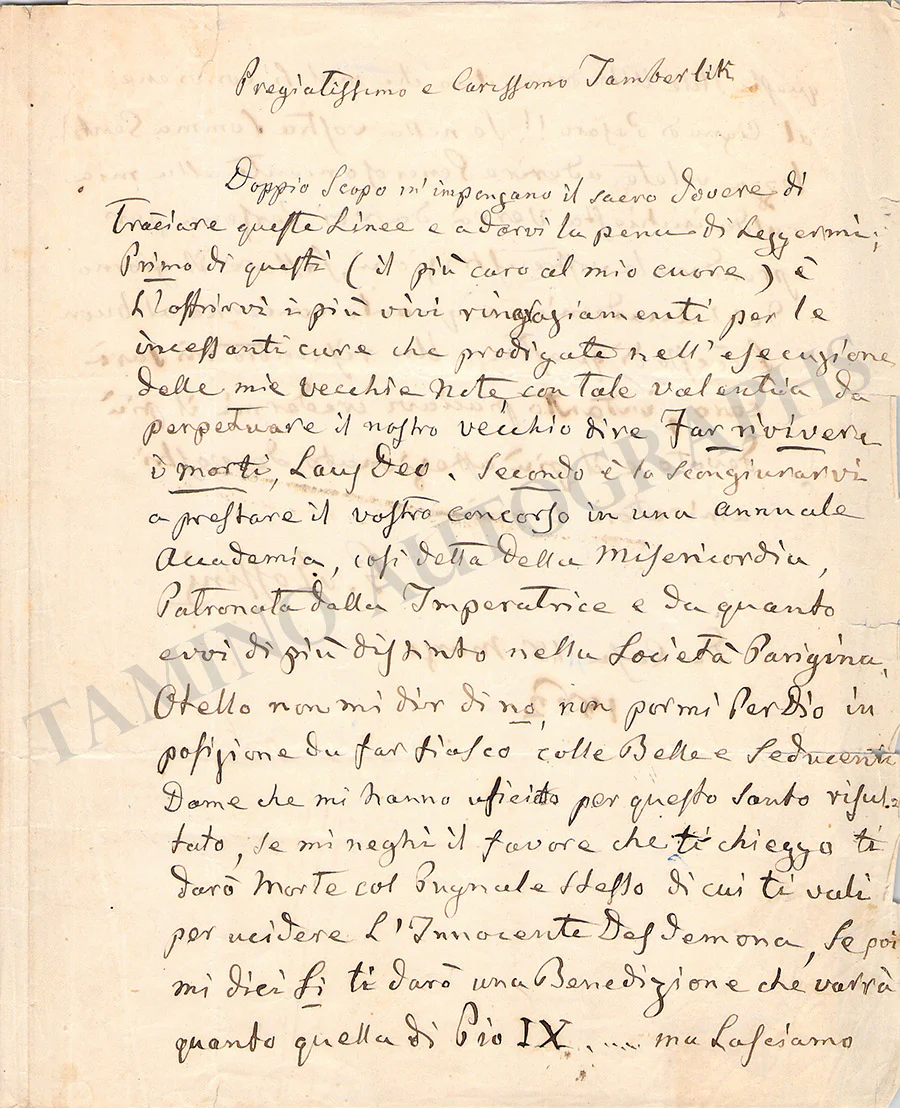 Pregiatissimo e Carissomo Tamberlik
Doppio Scopo m'impongano il sacro dovere di
Tracciare queste Linee e a darvi la pena di Leggermi;
Primo di questi ( il più caro al mio cuore ) è
L'offrirvi i più vivi ringragiamenti per le
incessanti cure che prodigate nell'esecuzione
delle mie vecchie Note, con tale valentia da
perpetuare il nostro vecchio dire Far rivivere
i morti, Laus Deo. Secondo è lo Scongiurarvi
a prestare il vostro concorso in una annuale
Accademia, così detta della Misericordia,
Patronata dalla Imperatrice e da quanto
evvi di più distinto nella Società Parigina,
Otello non mi dir di no, non pormi Per Dio in
posizione da far fiasco colle Belle e Seducenti
Dame che mi hanno per questo santo risul-
tato, se mi neghi il favore che ti chieggo ti
darò Morte col Pugnale stesso di cui ti vali
per ucidere L'Innocente Desdemona, se poi
mi dici Si ti darò una Benedizione che varrà
quanto quella di Pio IX ..... ma Lasciamo
TAMINO AUTOGRAPHS